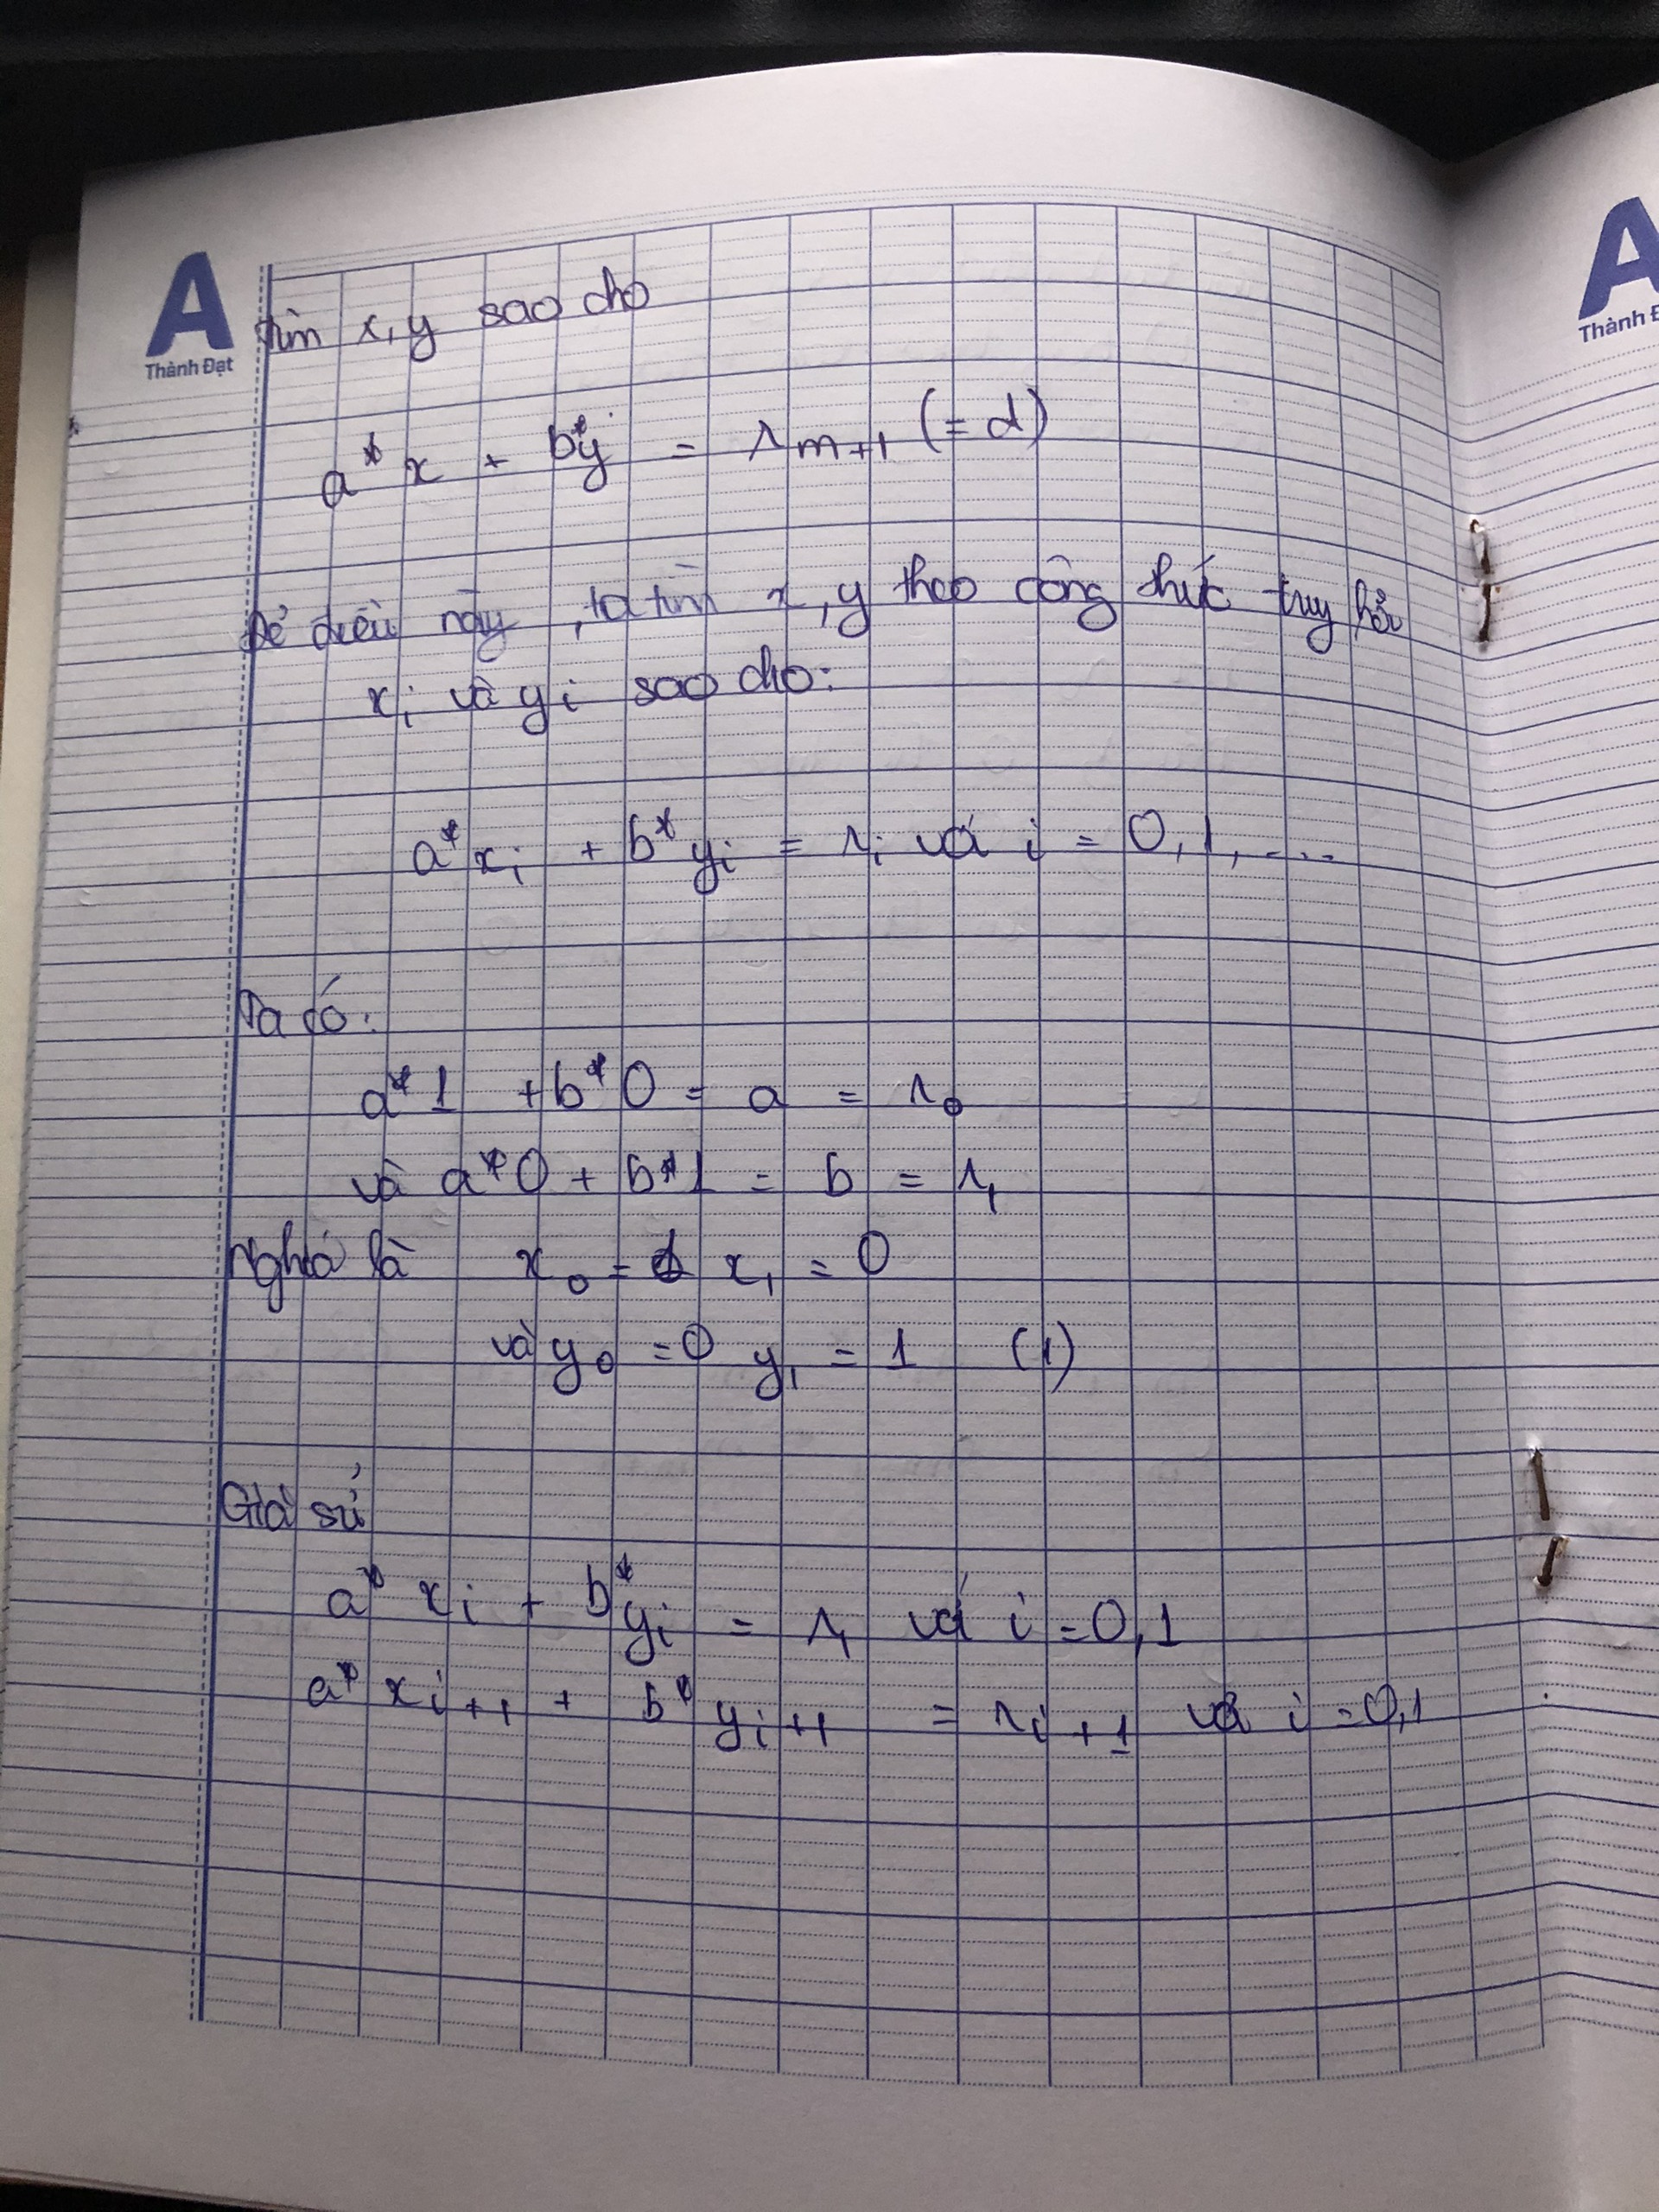 A
Thành Đạt
A
Thành Đ
tìm x, y sao cho
a* x + b*y = r m+1 (= d)
Để điều này, ta tìm x, y theo công thức truy hồi
xi và yi sao cho:
a* xi + b* yi = ri với i = 0, 1, ....
Ta có:
a*1 + b*0 = a = r0
và a*0 + b*1 = b = r1
Nghĩa là x0 = 1 x1 = 0
và y0 = 0 y1 = 1 (1)
Giả sử
a* xi + b*yi = ri với i = 0, 1
a* xi+1 + b* yi+1 = ri+1 với i = 0, 1